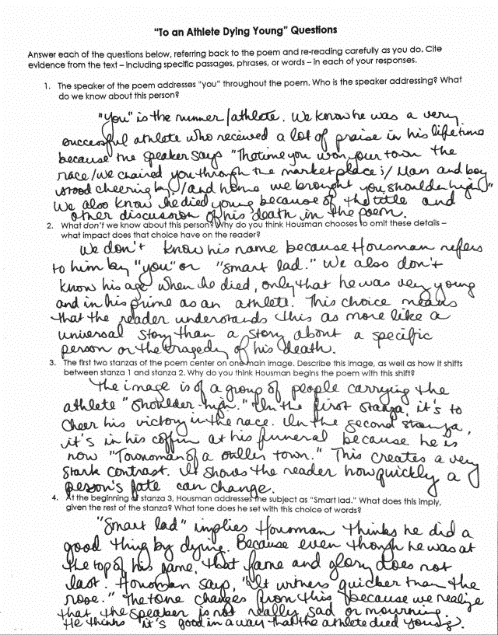 "To an Athlete Dying Young" Questions
Answer each of the questions below, referring back to the poem and re-reading carefully as you do. Cite
evidence from the text – including specific passages, phrases, or words – in each of your responses.
1. The speaker of the poem addresses "you" throughout the poem. Who is the speaker addressing? What
do we know about this person?
"You" is the runner/athlete. We know he was a very
successful athlete who received a lot of praise in his lifetime
because the speaker says "The time you won your town the
race/we chaired you through the marketplace;/ Man and boy
stood cheering by,/and home we brought you shoulder high."
We also know he died young because of the title and
other discussion of his death in the poem.
2. What don't we know about this person? Why do you think Housman chooses to omit these details –
what impact does that choice have on the reader?
We don't know his name because Housman refers
to him by "you" or "smart lad." We also don't
know his age when he died, only that he was very young
and in his prime as an athlete. This choice means
that the reader understands this as more like a
universal story than a story about a specific
person or the tragedy of his death.
3. The first two stanzas of the poem center on one main image. Describe this image, as well as how it shifts
between stanza 1 and stanza 2. Why do you think Housman begins the poem with this shift?
The image is of a group of people carrying the
athlete "shoulder-high." In the first stanza, it's to
cheer his victory in the race. In the second stanza,
it's in his coffin at his funeral because he is
now "Townsman of a stiller town." This creates a very
stark contrast. It shows the reader how quickly a
person's fate can change.
4. At the beginning of stanza 3, Housman addresses the subject as "Smart lad." What does this imply,
given the rest of the stanza? What tone does he set with this choice of words?
"Smart lad" implies Housman thinks he did a
good thing by dying. Because even though he was at
the top of his game, that fame and glory does not
last. Housman says, "It withers quicker than the
rose." The tone changes from this because we realize
that the speaker is not really sad or mourning.
He thinks it's good in a way that the athlete died young.